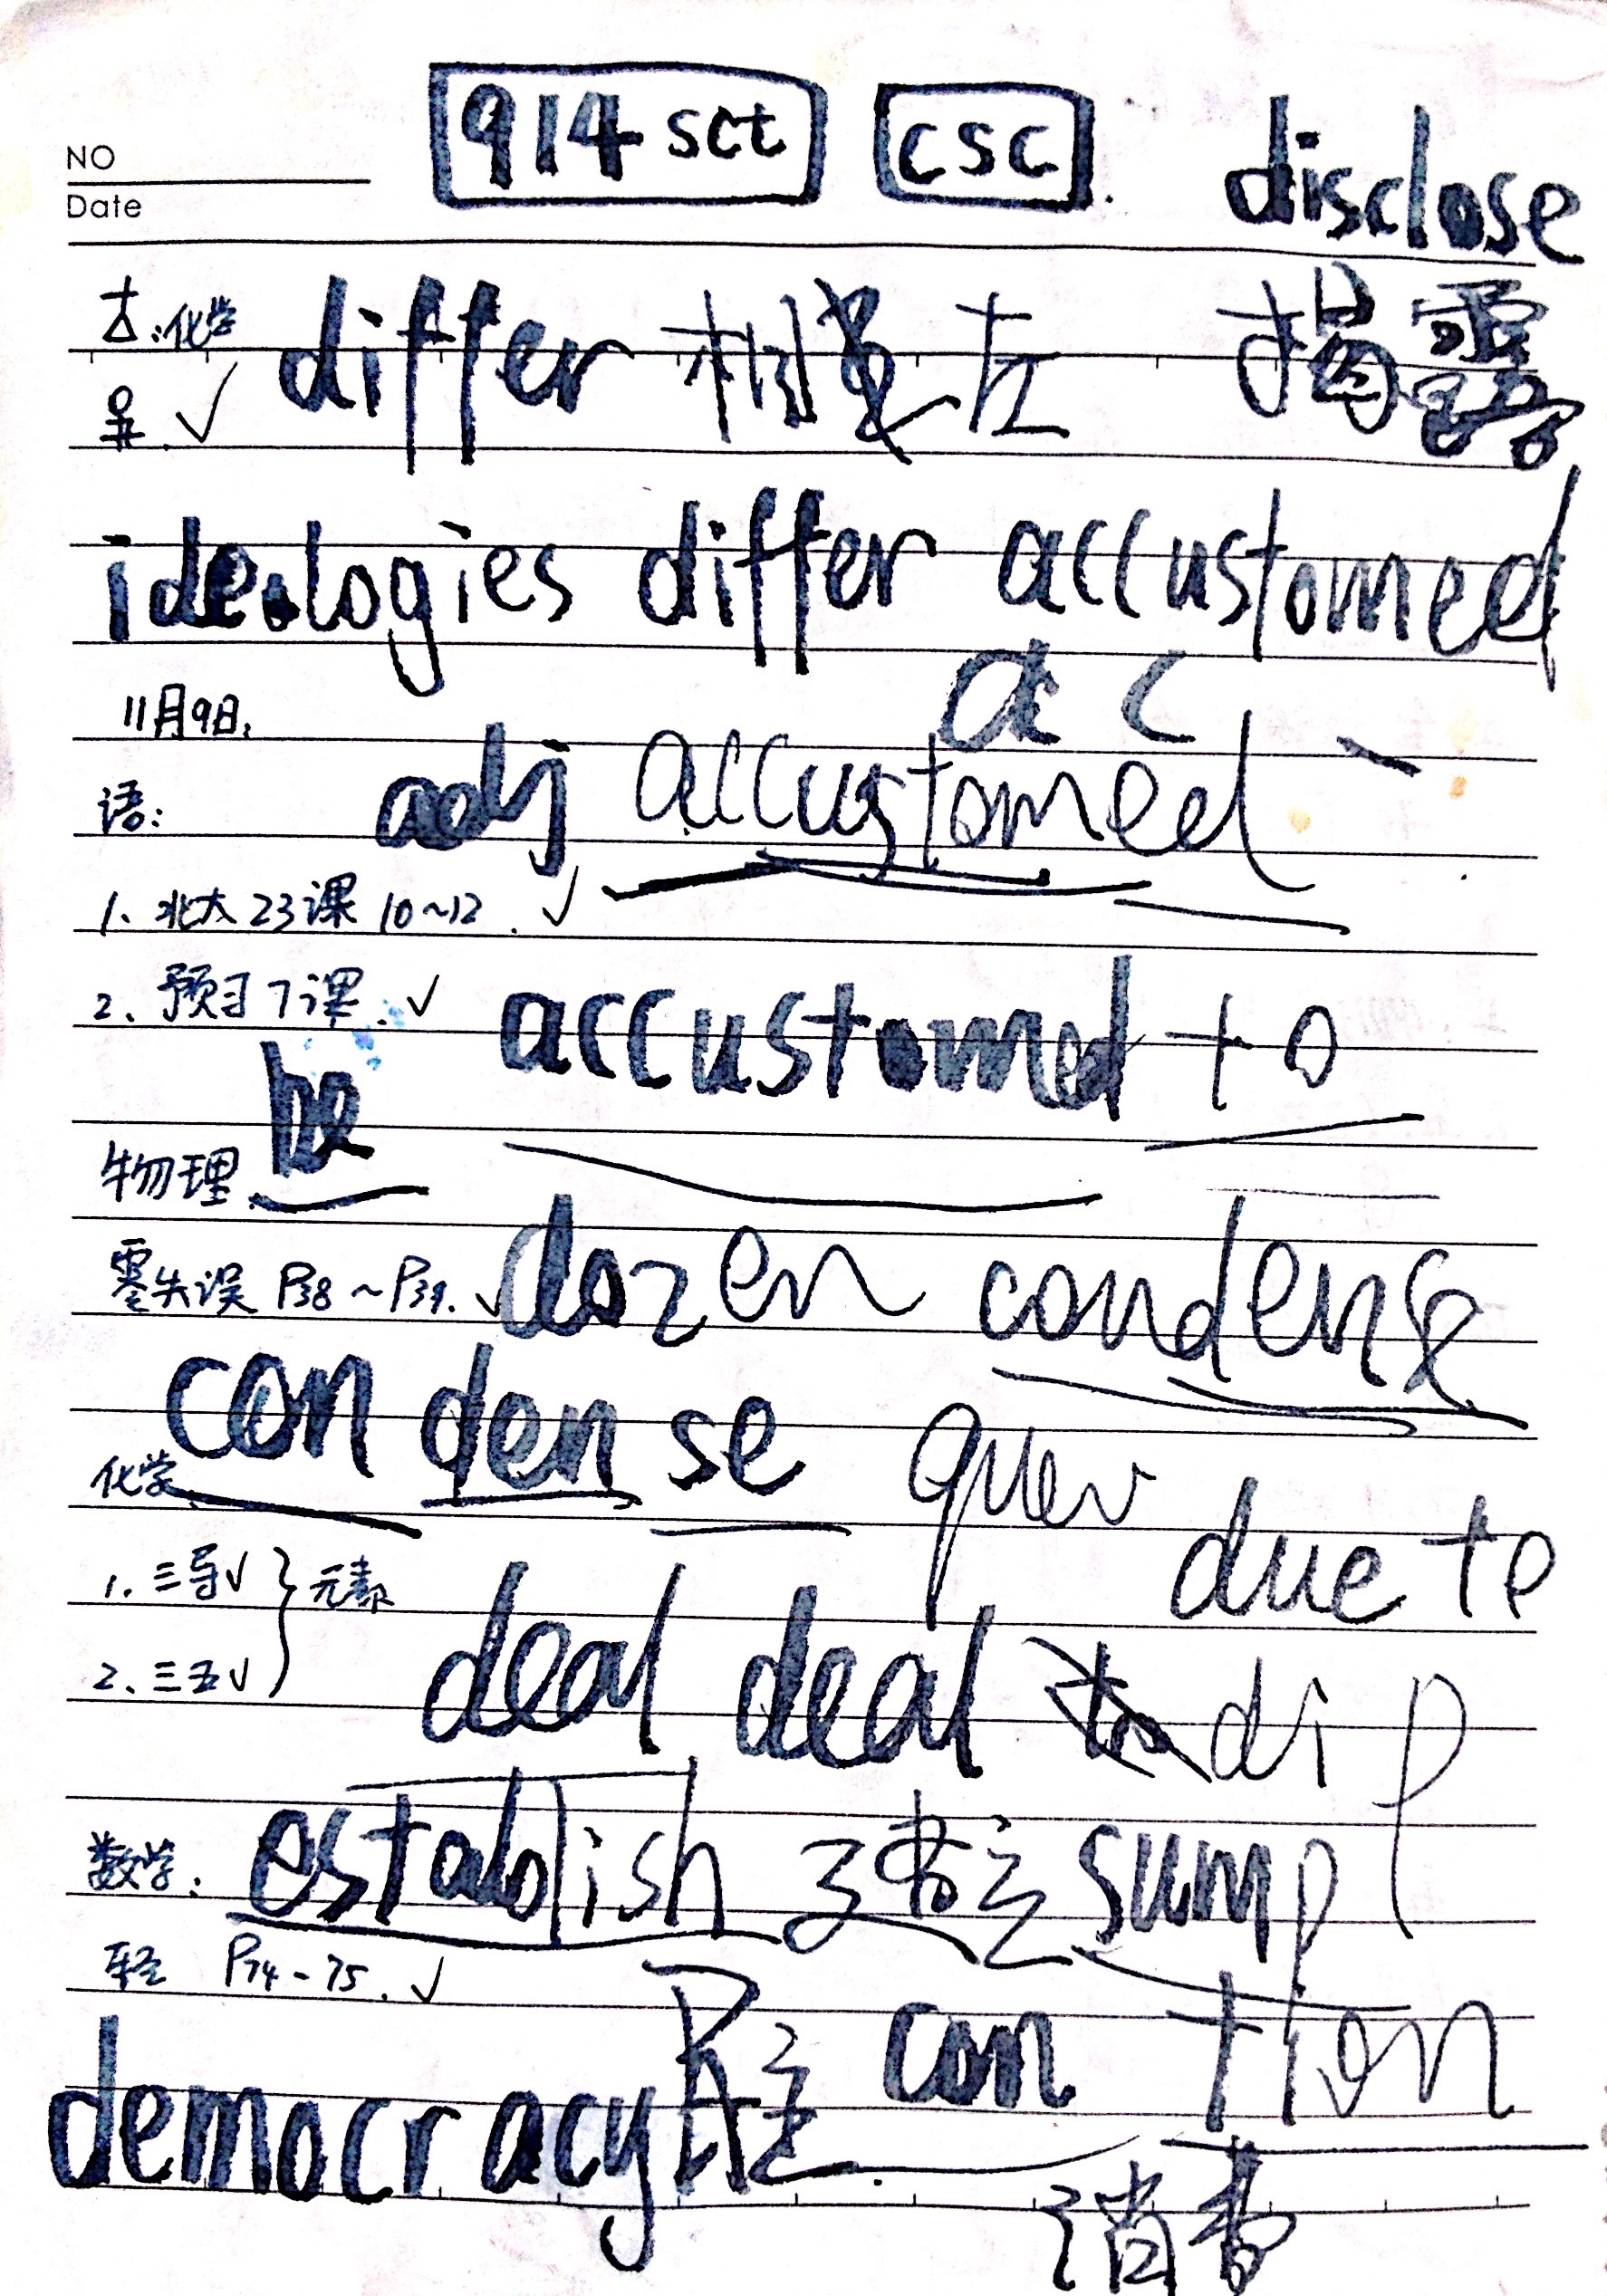 914 sct csc
NO
Date
disclose
化学 differ 相差在 揭露
ideologies differ accustomed
a c
11月9日:
语: adj accustomed
1、北大23课 10~12.
2、预习7课. accustomed to
be
物理
零失误 P38~P39. dozen condense
con den se
化学 due to
1、三导 元素
2、三五 deal deal dip
数学: establish 建立 sump
轻 P74-75.
democracy 民主 con tion
消费